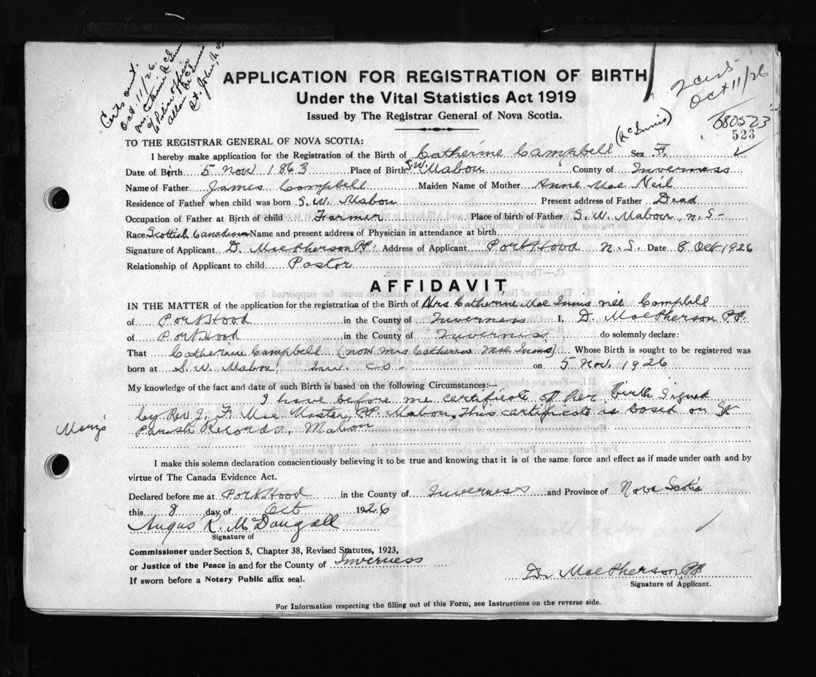 Certs out.
Oct. 11/26.
2 certs
Oct 11/26
680523
523
APPLICATION FOR REGISTRATION OF BIRTH
Under the Vital Statistics Act 1919
Issued by The Registrar General of Nova Scotia.
TO THE REGISTRAR GENERAL OF NOVA SCOTIA:
(McInnis)
I hereby make application for the Registration of the Birth of Catherine Campbell Sex F.
Date of Birth 5 Nov 1863 Place of Birth S.W. Mabou County of Inverness
Name of Father James Campbell Maiden Name of Mother Anne Mac Neil
Residence of Father when child was born S.W. Mabou Present address of Father Dead
Occupation of Father at Birth of child Farmer Place of birth of Father S.W. Mabou, N.S-
Race Scottish Canadian Name and present address of Physician in attendance at birth
Signature of Applicant D. MacPherson PP. Address of Applicant Port Hood N.S. Date 8 Oct 1926
Relationship of Applicant to child Pastor
AFFIDAVIT
IN THE MATTER of the application for the registration of the Birth of Mrs Catherine Mac Innis nee Campbell
of Port Hood in the County of Inverness I, D. MacPherson PP.
of Port Hood in the County of Inverness, do solemnly declare:
That Catherine Campbell (now Mrs Catherine Mac Innis) Whose Birth is sought to be registered was
born at S.W. Mabou, Inv. Co- on 5 Nov. 1926
My knowledge of the fact and date of such Birth is based on the following Circumstances:—
I have before me certificate of her birth signed
by Rev J. F. Mac Master, PP. Mabou, This certificate is based on St
Mary's Parish Records, Mabou
I make this solemn declaration conscientiously believing it to be true and knowing that it is of the same force and effect as if made under oath and by
virtue of The Canada Evidence Act.
Declared before me at Port Hood in the County of Inverness and Province of Nova Scotia
this 8 day of Oct 1926
Angus R. McDougall
Signature of
Commissioner under Section 5, Chapter 38, Revised Statutes, 1923,
or Justice of the Peace in and for the County of Inverness
If sworn before a Notary Public affix seal.
D. MacPherson, PP.
Signature of Applicant.
For Information respecting the filling out of this Form, see Instructions on the reverse side.